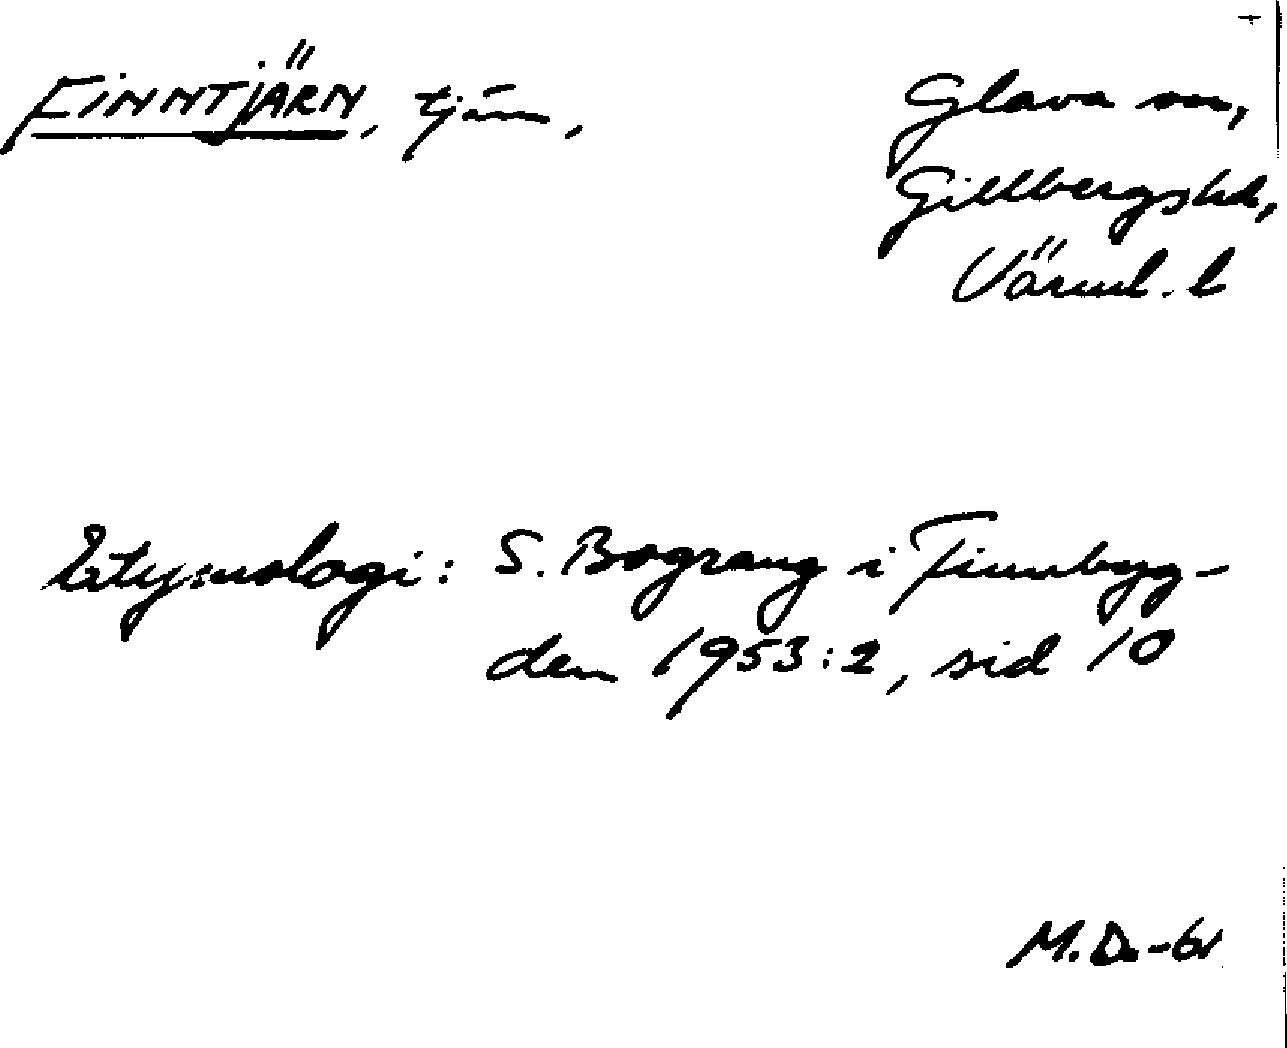 FINNTJÄRN, tjärn,
Glava sn,
Gillbergshd,
Värml. l
Etymologi: S. Bograng i Finnbyg-
den 1953:2, sid 10
M.D.-61